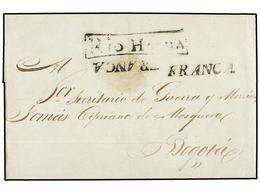 FRANCA
FRANCA
M
Sor. Secretario de Guerra y Marina
Tomás Cipriano de Mosquera
Bogotá